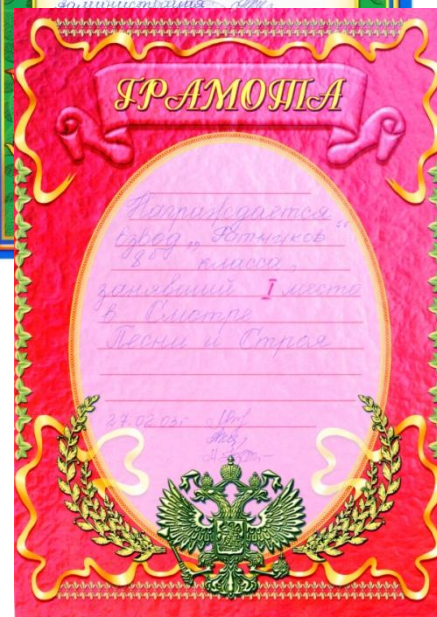 администрация
ГРАМОТА
Награждается
взвод „
8 класса,
занявший I место
в Смотре
Песни и Строя
27.02.03г.